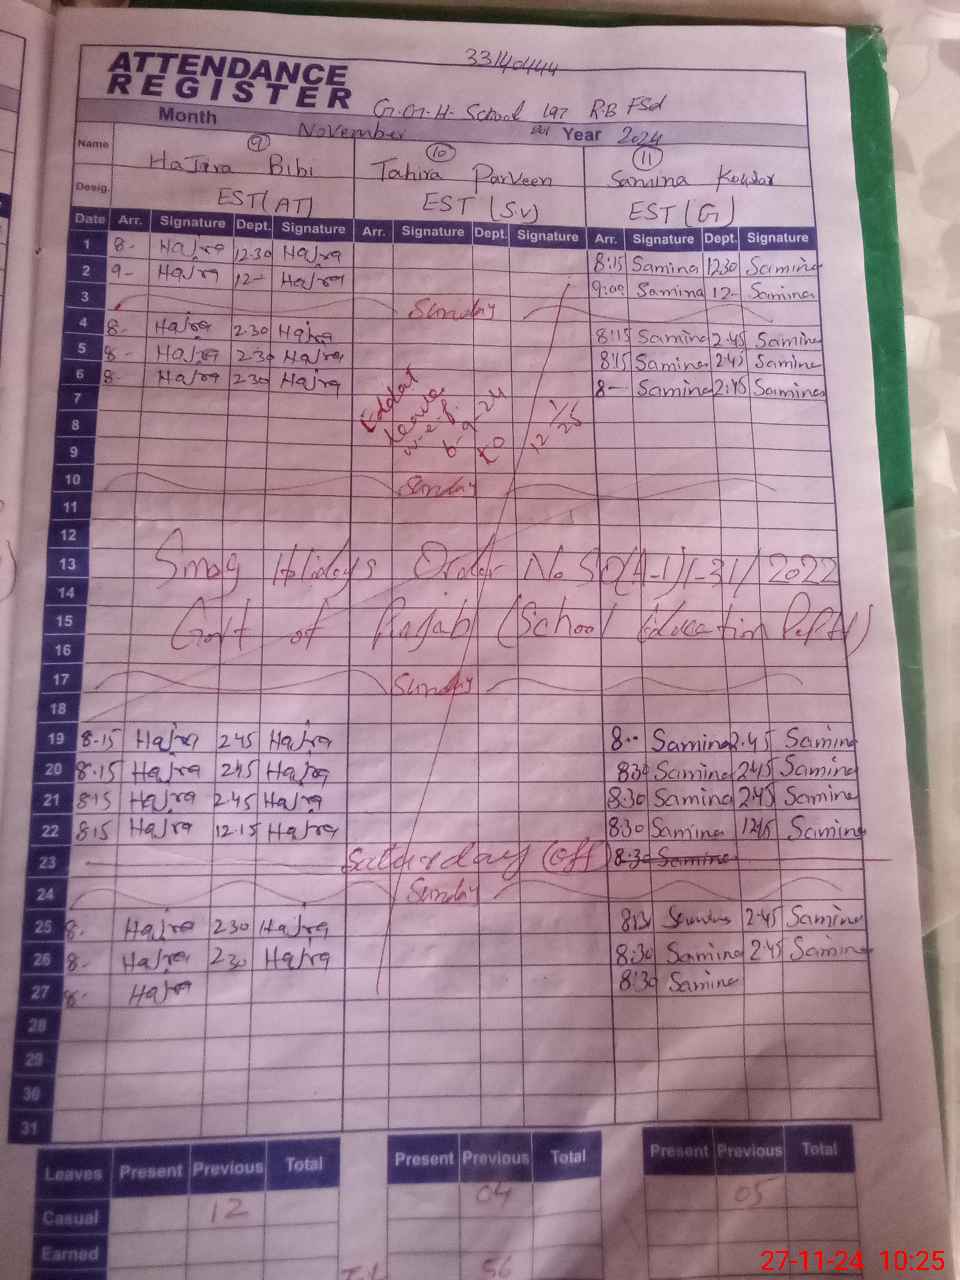 33140444
ATTENDANCE
REGISTER
G.G.H. School 197 R.B FSd
Month November Year 2024
Name 9 Hajra Bibi 10 Tahira Parveen 11 Samina Kousar
Desig. EST(AT) EST (S.V) EST (G)
Date Arr. Signature Dept. Signature Arr. Signature Dept. Signature Arr. Signature Dept. Signature
1 8- Hajra 12.30 Hajra 8:15 Samina 12.30 Samina
2 9- Hajra 12- Hajra 9:00 Samina 12- Samina
3 Sunday
4 8- Hajra 2.30 Hajra 8:15 Samina 2.45 Samina
5 8- Hajra 2.30 Hajra 8:15 Samina 2.45 Samina
6 8- Hajra 2.30 Hajra 8- Samina 2:45 Samina
7
8 leave
9 w-e-f. 6-9-24 to 12/1/25
10 Sunday
11
12
13 Smog Holidays Order No SO(A-1)1-31/2022
14
15 Govt of Punjab (School Education Deptt)
16
17 Sunday
18
19 8-15 Hajra 2.45 Hajra 8-- Samina 2.45 Samina
20 8.15 Hajra 2.45 Hajra 8:30 Samina 2.45 Samina
21 8.15 Hajra 2.45 Hajra 8:30 Samina 2.45 Samina
22 8.15 Hajra 12.15 Hajra 8:30 Samina 12.45 Samina
23 Saturday (off) 8:30 Samina
24 Sunday
25 8- Hajra 2.30 Hajra 8:30 Samina 2.45 Samina
26 8- Hajra 2.30 Hajra 8:30 Samina 2.45 Samina
27 8- Hajra 8:30 Samina
28
29
30
31
Leaves Present Previous Total Present Previous Total Present Previous Total
Casual 12 04 05
Earned 56
27-11-24 10:25